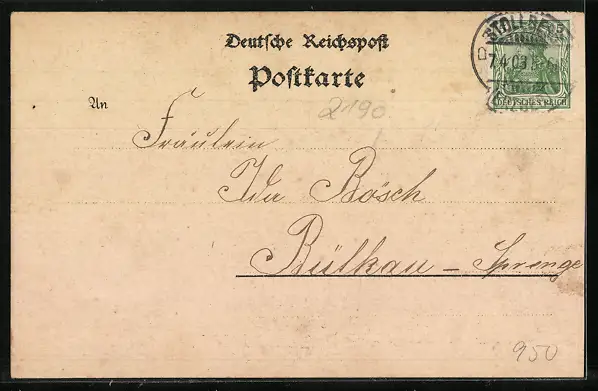 Deutsche Reichspost
Postkarte
STOLLBERG
7.4.03
DEUTSCHES REICH
An
2190.
Fräulein
Ida Bösch
Bülkau - Sprenge
950